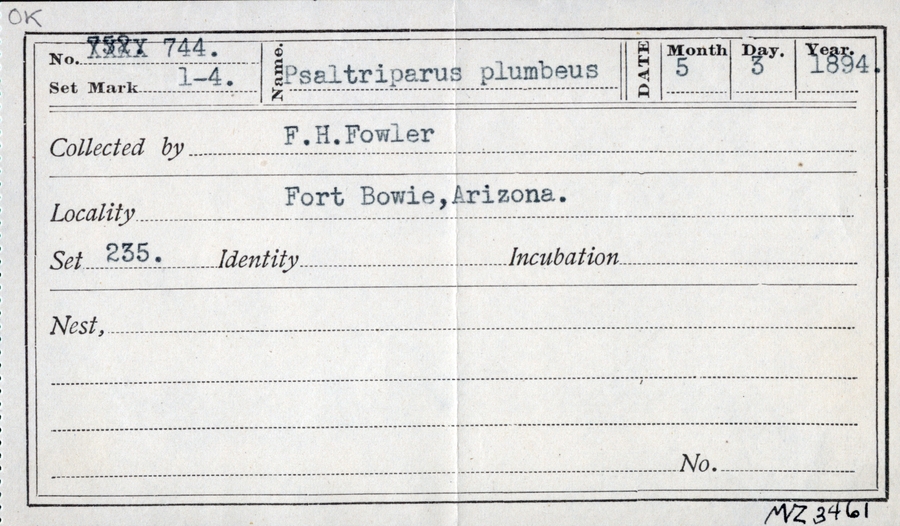 OK
No. 744. Name. Psaltriparus plumbeus DATE Month 5 Day. 3 Year. 1894.
Set Mark 1-4.
Collected by F.H.Fowler
Locality Fort Bowie,Arizona.
Set 235. Identity Incubation
Nest,
No.
MVZ 3461